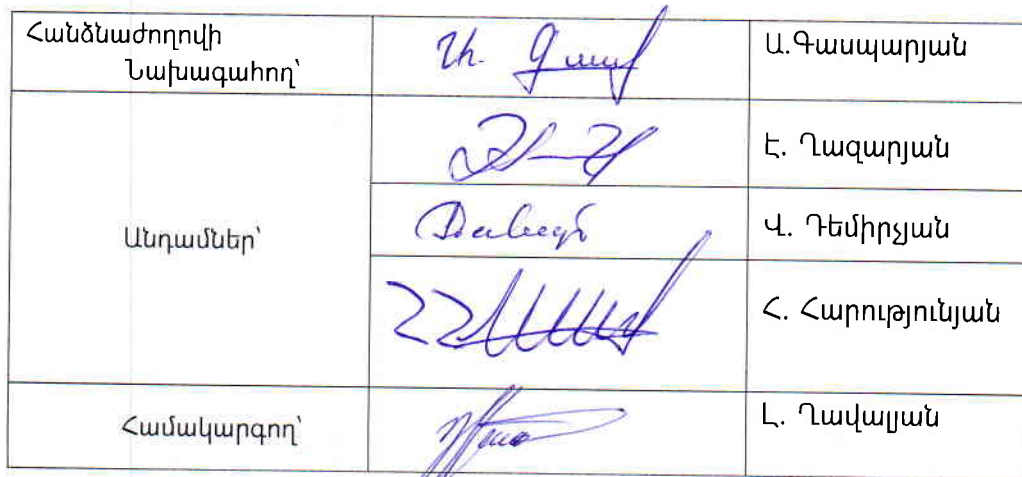 Հանձնաժողովի
Նախագահող՝
Ա.Գասպարյան
Է. Ղազարյան
Անդամներ՝
Վ. Դեմիրչյան
Հ. Հարությունյան
Համակարգող՝
Լ. Ղավալյան